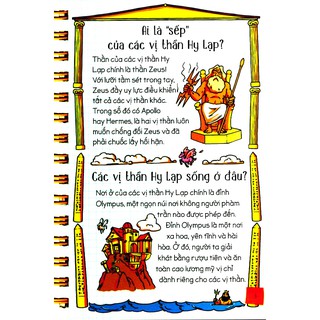 Ai là "sếp"
của các vị thần Hy Lạp?
Thần của các vị thần Hy
Lạp chính là thần Zeus!
Với lưỡi tầm sét trong tay,
Zeus đầy uy lực điều khiển
tất cả các vị thần khác.
Trong số đó có Apollo
hay Hermes, là hai vị thần luôn
muốn chống đối Zeus và đã
phải chuốc lấy hối hận.
Các vị thần Hy Lạp sống ở đâu?
Nơi ở của các vị thần Hy Lạp chính là đỉnh
Olympus, một ngọn núi nơi không người phàm
trần nào được phép đến.
Đỉnh Olympus là một nơi
xa hoa, yên tĩnh và hài
hòa. Ở đó, người ta giải
khát bằng rượu tiên và ăn
toàn cao lương mỹ vị chỉ
dành riêng cho các vị thần.